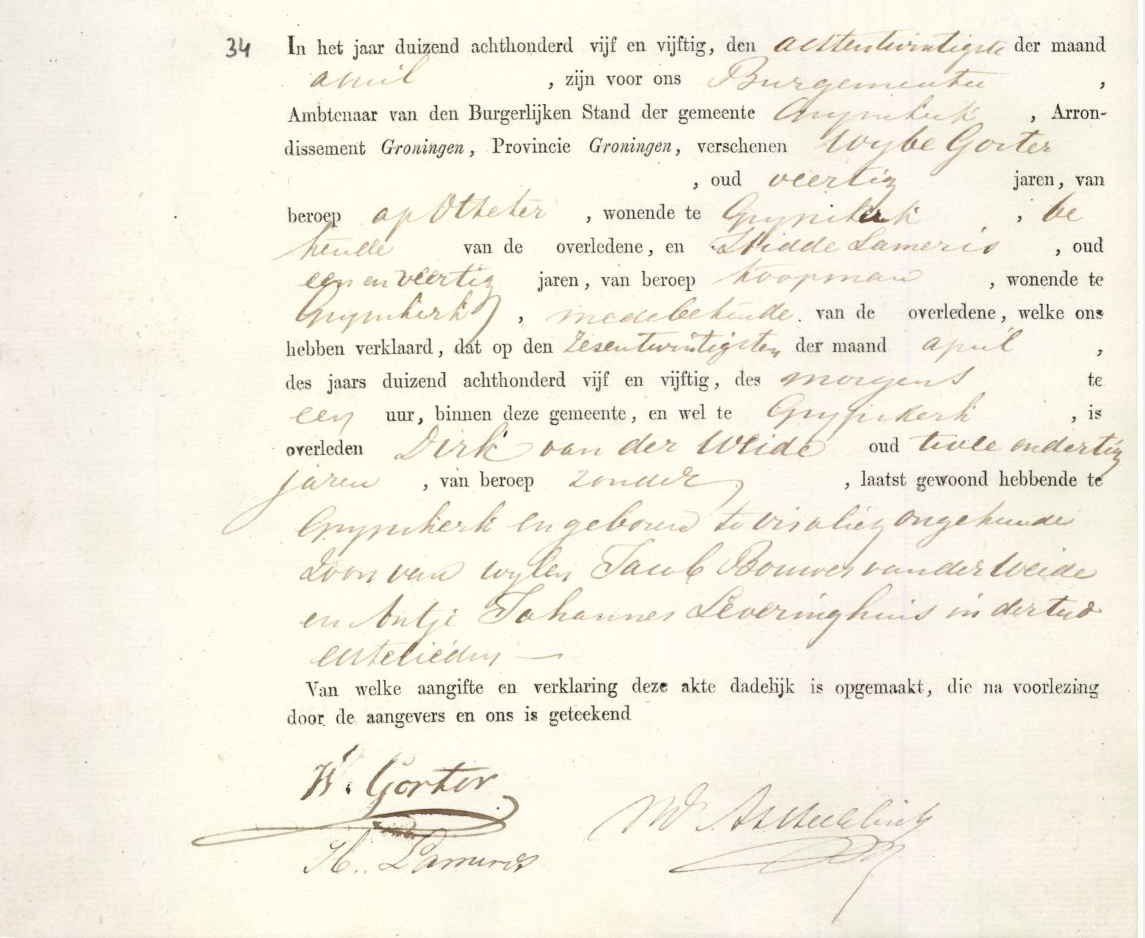 34 In het jaar duizend achthonderd vijf en vijftig, den achtentwintigste der maand
april , zijn voor ons Burgemeester ,
Ambtenaar van den Burgerlijken Stand der gemeente Grypskerk , Arron-
dissement Groningen, Provincie Groningen, verschenen Wybe Gorter
, oud veertig jaren, van
beroep apotheker , wonende te Grypskerk , be
kende van de overledene, en Hidde Lameris , oud
een en veertig jaren, van beroep koopman , wonende te
Grypskerk , medebekende van de overledene, welke ons
hebben verklaard, dat op den zesentwintigsten der maand april ,
des jaars duizend achthonderd vijf en vijftig, des morgens te
een uur, binnen deze gemeente, en wel te Grypskerk , is
overleden Dirk van der Weide oud twee en dertig
jaren , van beroep zonder , laatst gewoond hebbende te
Grypskerk en geboren te visvliet ongehuwde
Zoon van wylen Jacob Bouwes van der Weide
en Antje Johannes Leveringhuis in der tyd
echtelieden —
Van welke aangifte en verklaring deze akte dadelijk is opgemaakt, die na voorlezing
door de aangevers en ons is geteekend
W. Gorter
H. Lameris